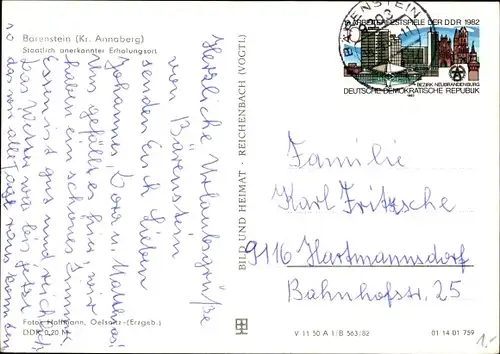 Bärenstein (Kr. Annaberg)
Staatlich anerkannter Erholungsort
Herzliche Urlaubsgrüße
von Bärenstein
senden Euch Lieben
Johannes, Dora u. Matthias!
Uns gefällt es hier, wir
haben ein schönes Zimmer.
Essen ist gut und reichlich.
Das Wetter war bis jetzt
so das wir alle Tage raus konnten
Foto: Hoffmann, Oelsnitz (Erzgeb.)
DDR 0,20 M
BILD UND HEIMAT · REICHENBACH (VOGTL)
BÄRENSTEIN
ARBEITERFESTSPIELE DER DDR 1982
BEZIRK NEUBRANDENBURG
DEUTSCHE DEMOKRATISCHE REPUBLIK
1982
Familie
Karl Fritzsche
9116 Hartmannsdorf
Bahnhofstr. 25
V 11 50 A 1/B 563/82
01 14 01 759
1.-